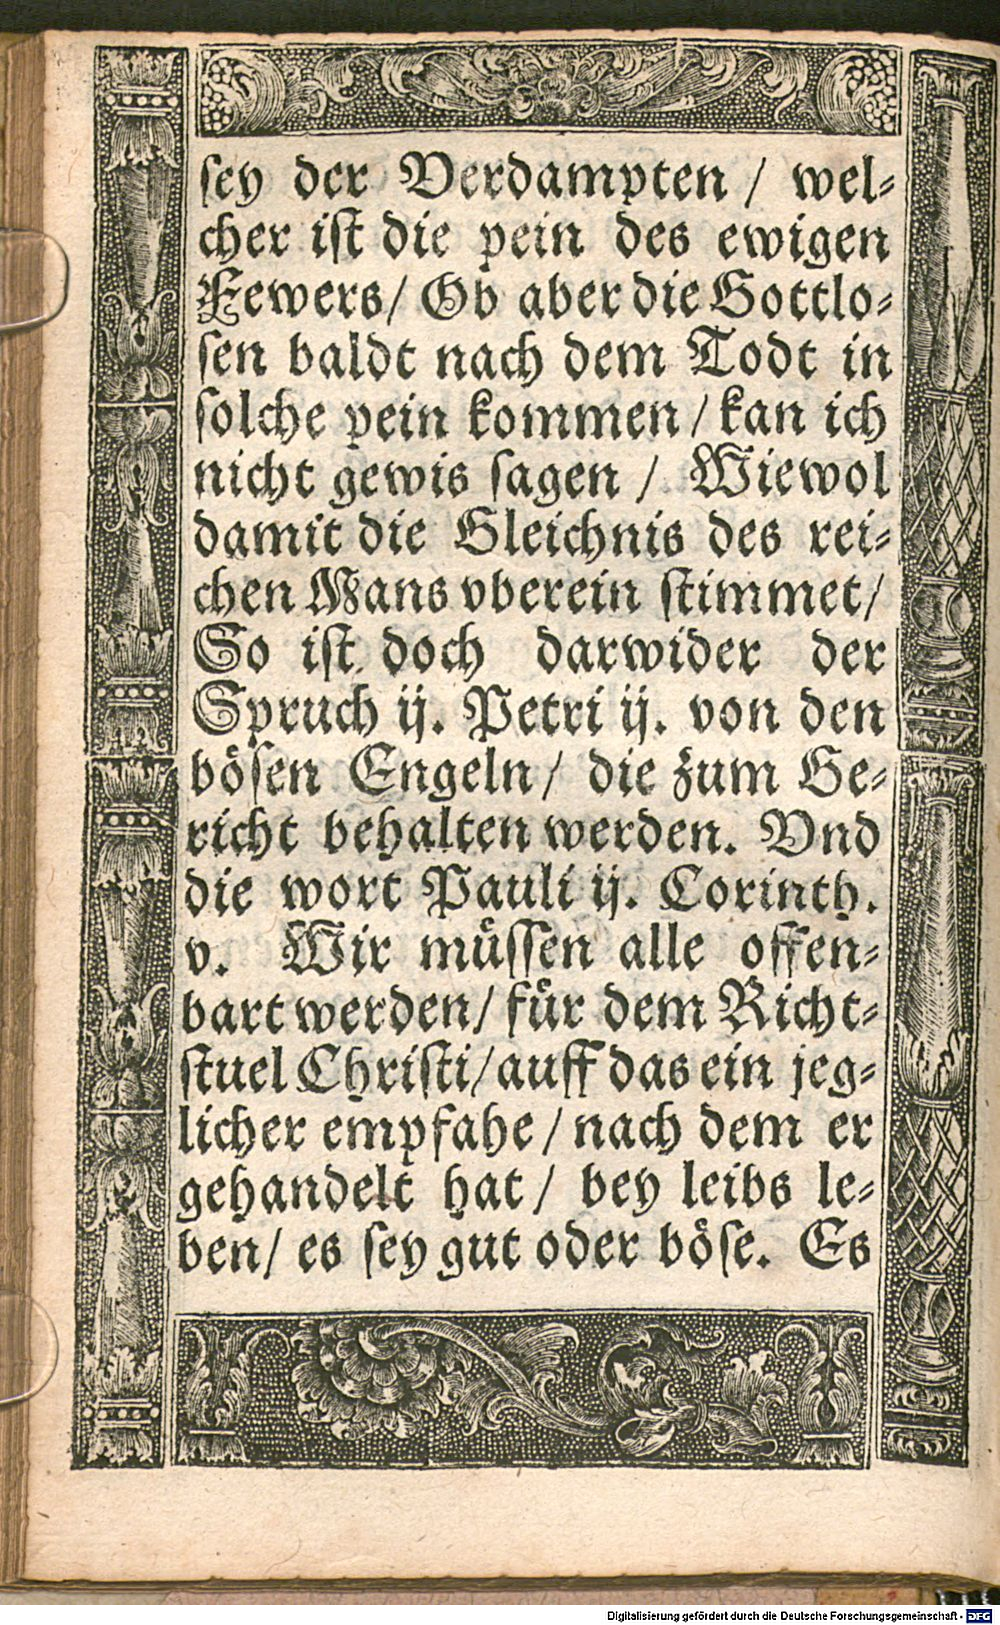 sey der Verdampten / wel⸗
cher ist die pein des ewigen
Fewers / Ob aber die Gottlo⸗
sen baldt nach dem Todt in
solche pein kommen / kan ich
nicht gewis sagen / Wiewol
damit die Gleichnis des rei⸗
chen Mans vberein stimmet /
So ist doch darwider der
Spruch ij. Petri ij. von den
bösen Engeln / die zum Ge⸗
richt behalten werden. Vnd
die wort Pauli ij. Corinth.
v. Wir müssen alle offen⸗
bart werden / für dem Richt⸗
stuel Christi / auff das ein jeg⸗
licher empfahe / nach dem er
gehandelt hat / bey leibs le⸗
ben / es sey gut oder böse. Es
Digitalisierung gefördert durch die Deutsche Forschungsgemeinschaft - DFG